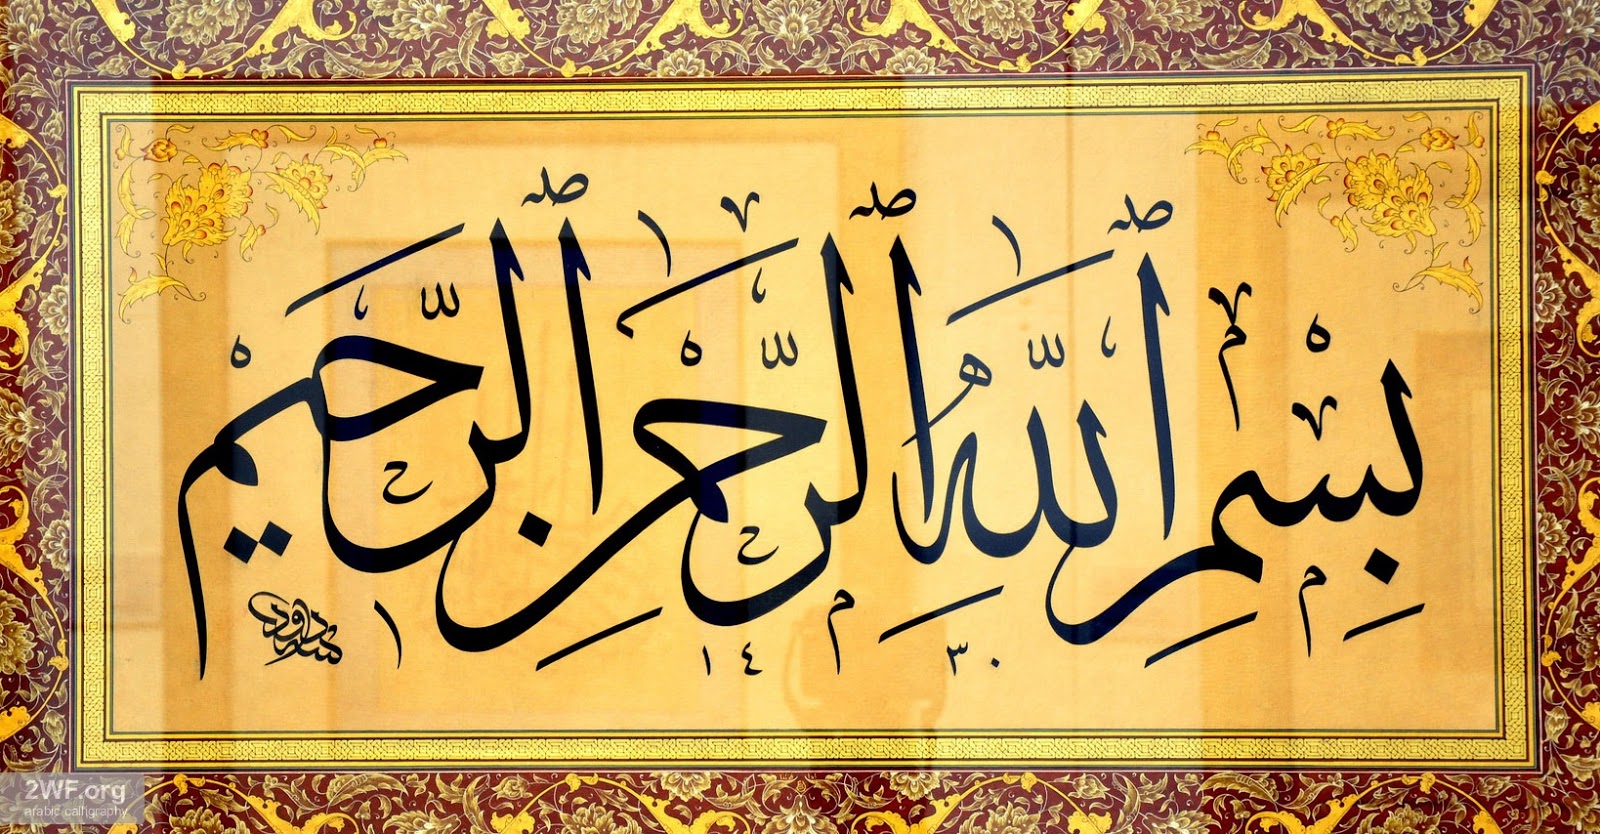 بِسْمِ ٱللَّهِ ٱلرَّحْمَٰنِ ٱلرَّحِيمِ
١٤٣٠
داود
2WF.org
arabic calligraphy